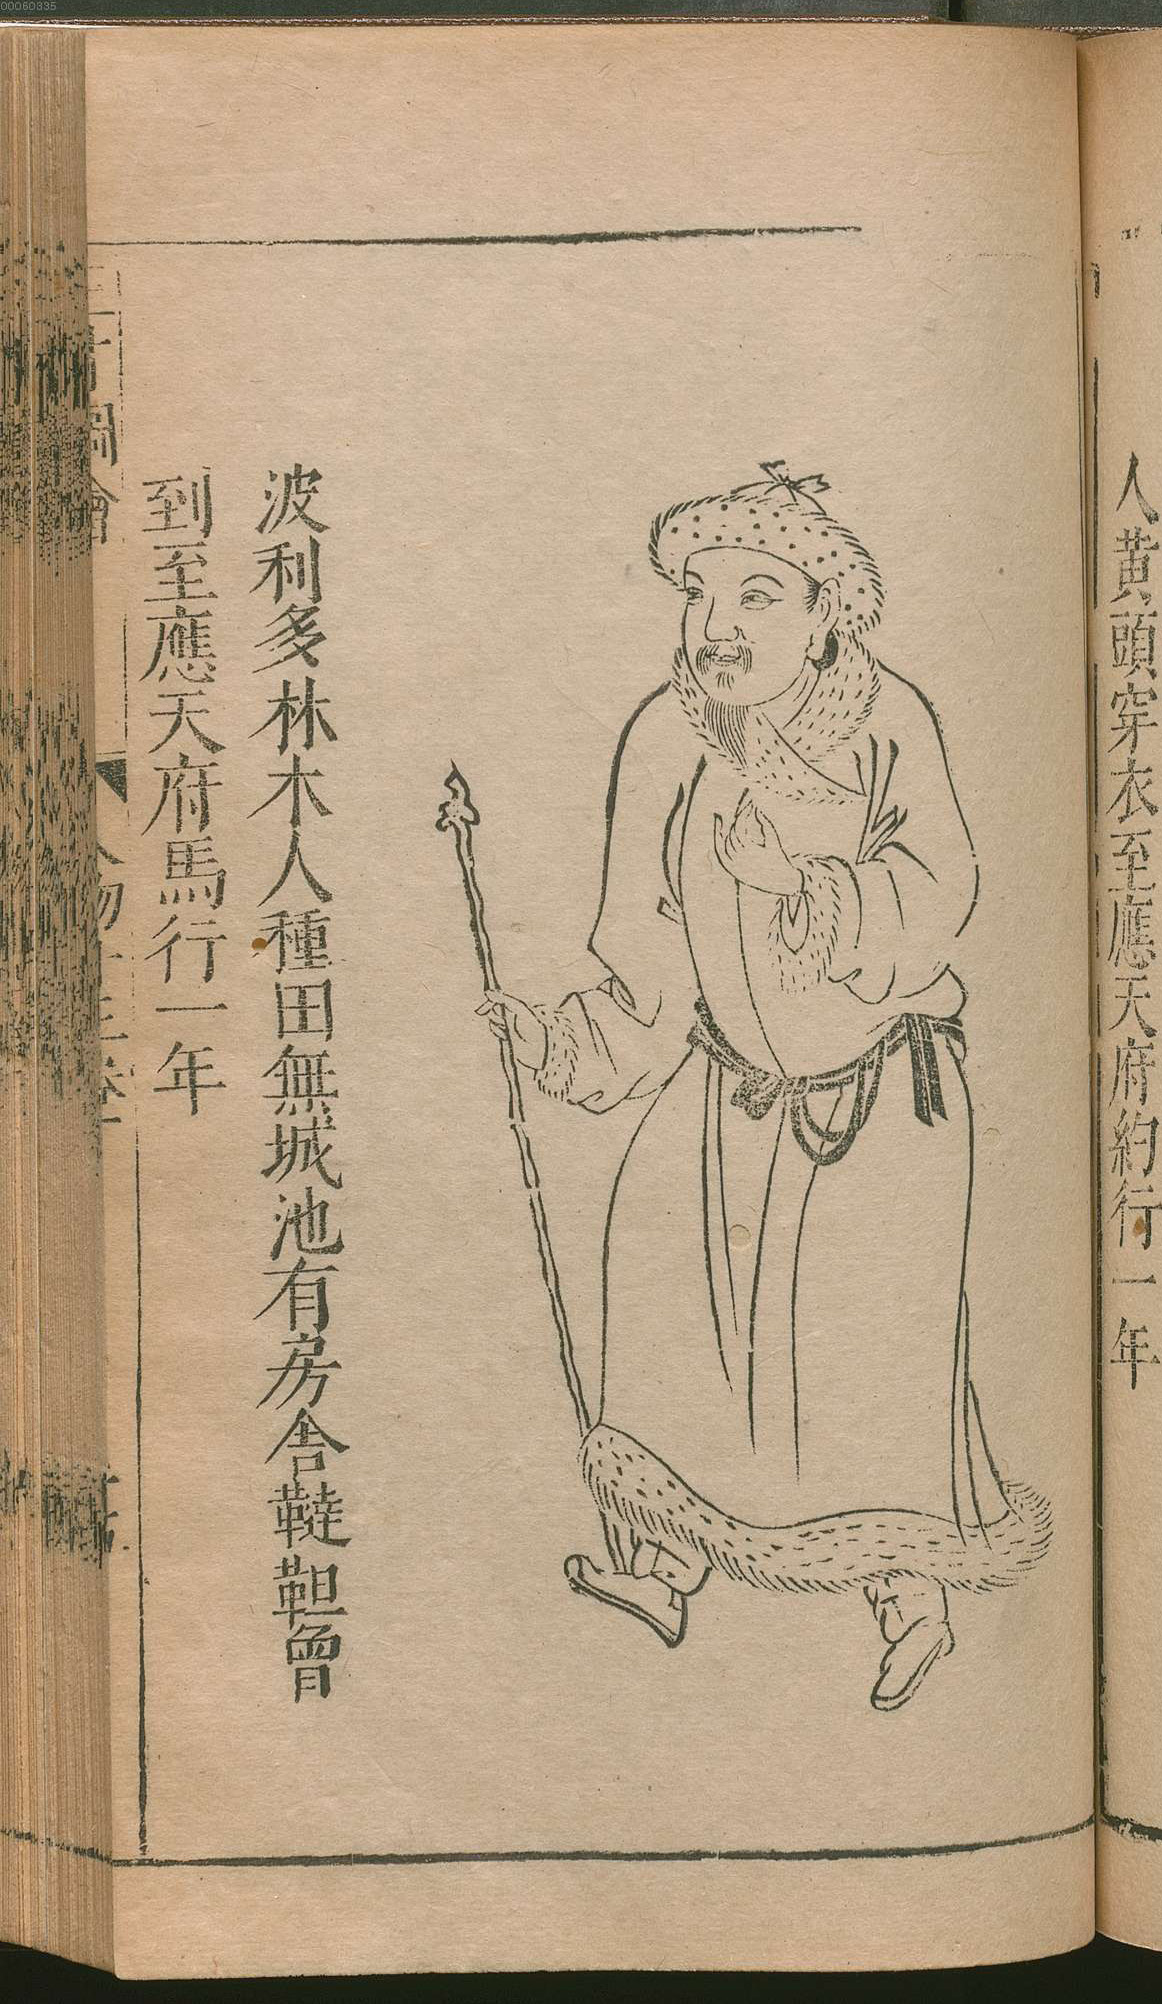 00060335
人黄頭穿衣至應天府約行一年
波利多林木人種田無城池有房舍韃靼曾
到至應天府馬行一年
圖會